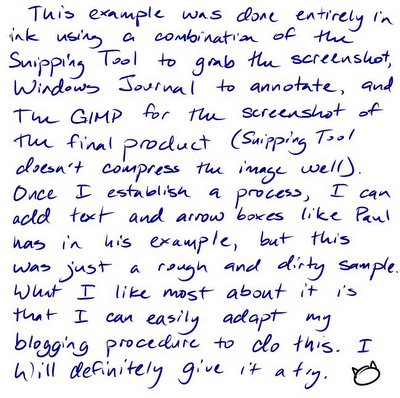 This example was done entirely in
ink using a combination of the
Snipping Tool to grab the screenshot,
Windows Journal to annotate, and
The GIMP for the screenshot of
the final product (Snipping Tool
doesn't compress the image well).
Once I establish a process, I can
add text and arrow boxes like Paul
has in his example, but this
was just a rough and dirty sample.
What I like most about it is
that I can easily adapt my
blogging procedure to do this. I
will definitely give it a try.